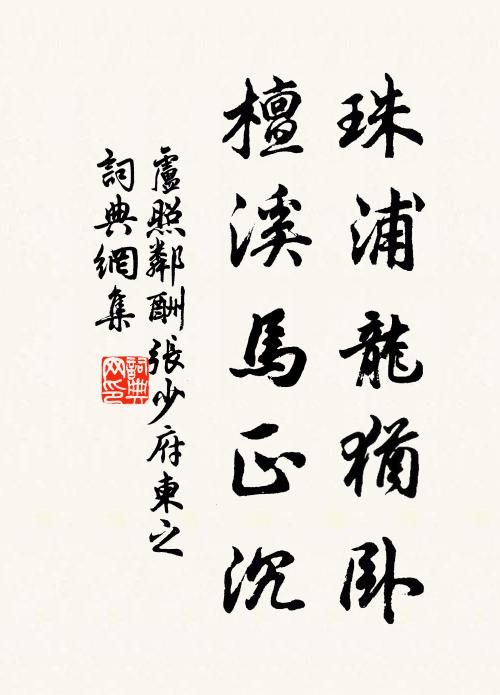 珠浦龍猶卧
檀溪馬正沉
盧照鄰酬張少府東之
詞典網集
詞典网印